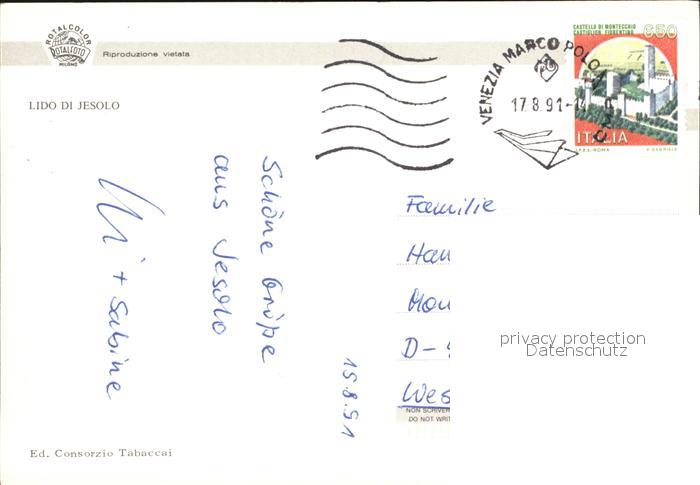 ROTALCOLOR
ROTALFOTO
MILANO
Riproduzione vietata
LIDO DI JESOLO
CASTELLO DI MONTECCHIO
CASTIGLION FIORENTINO
650
ITALIA
I.P.Z.S.-ROMA
VENEZIA MARCO POLO
17.8.91-14
Schöne Grüße
aus Jesolo
Uli + Sabine
15.8.91
Familie
Han
Mou
D-
Wes
NON SCRIVER
DO NOT WRIT
privacy protection
Datenschutz
Ed. Consorzio Tabaccai